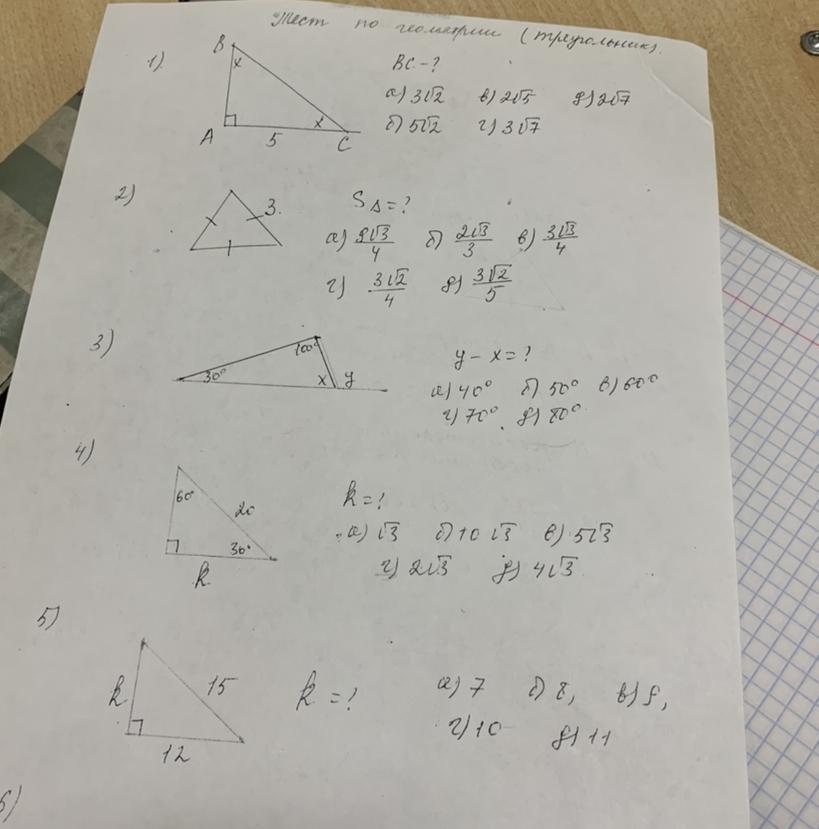 Тест по геометрии (треугольник).
1) B x BC-?
а) 3√2 в) 2√5 д) 2√7
б) 5√2 г) 3√7
A 5 x C
2) 3. S△=?
а) 9√3/4 б) 2√3/3 в) 3√3/4
г) 3√2/4 д) 3√2/5
3) 100° y - x = ?
30° x y а) 40° б) 50° в) 60°
г) 70° д) 80°
4) 60° 20 k = ?
а) √3 б) 10√3 в) 5√3
30° г) 2√3 д) 4√3
k
5)
k 15 k = ? а) 7 б) 8, в) 9,
г) 10 д) 11
12
6)